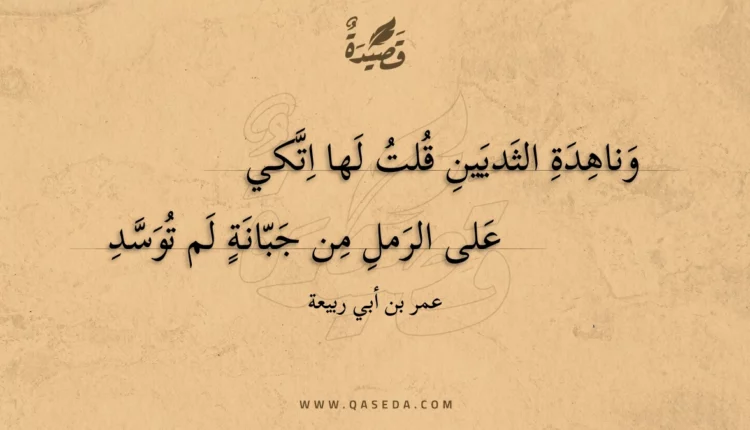 قَصِيْدَةٌ
وَناهِدَةِ الثَديَينِ قُلتُ لَها اِتَّكي
عَلى الرَملِ مِن جَبّانَةٍ لَم تُوَسَّدِ
عمر بن أبي ربيعة
WWW.QASEDA.COM